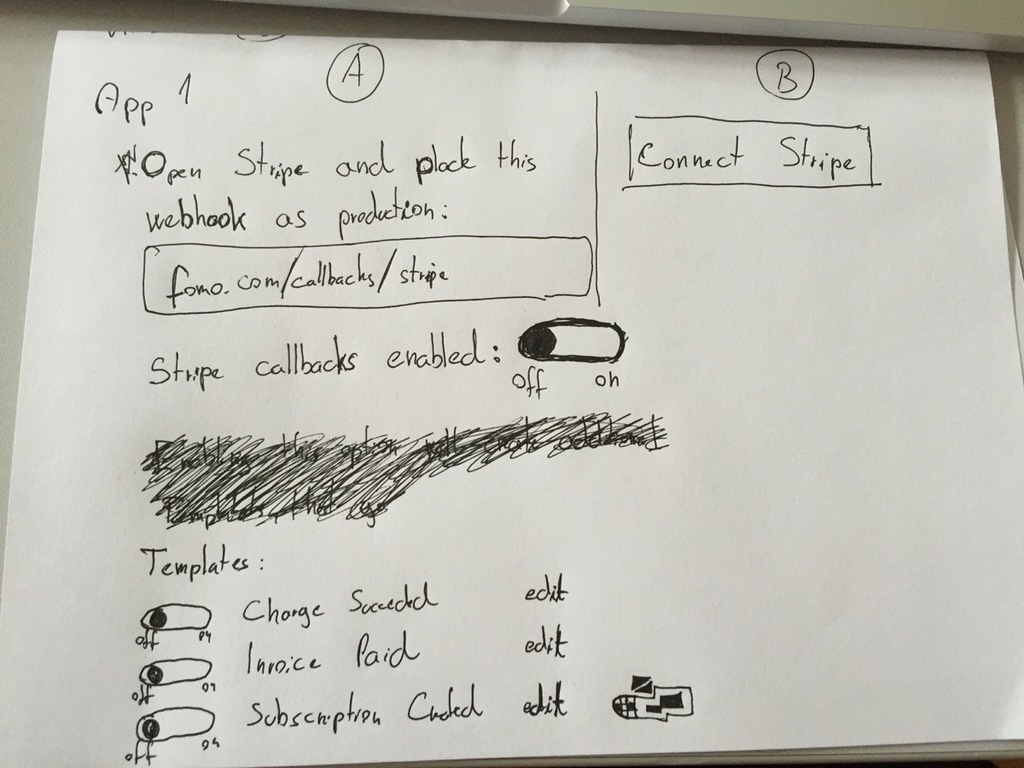 A
B
App 1
Open Stripe and place this
webhook as production:
fomo.com/callbacks/stripe
Connect Stripe
Stripe callbacks enabled:
off on
this option
Templates:
Charge Succeded edit
off on
Invoice Paid edit
off on
Subscription edit
off on